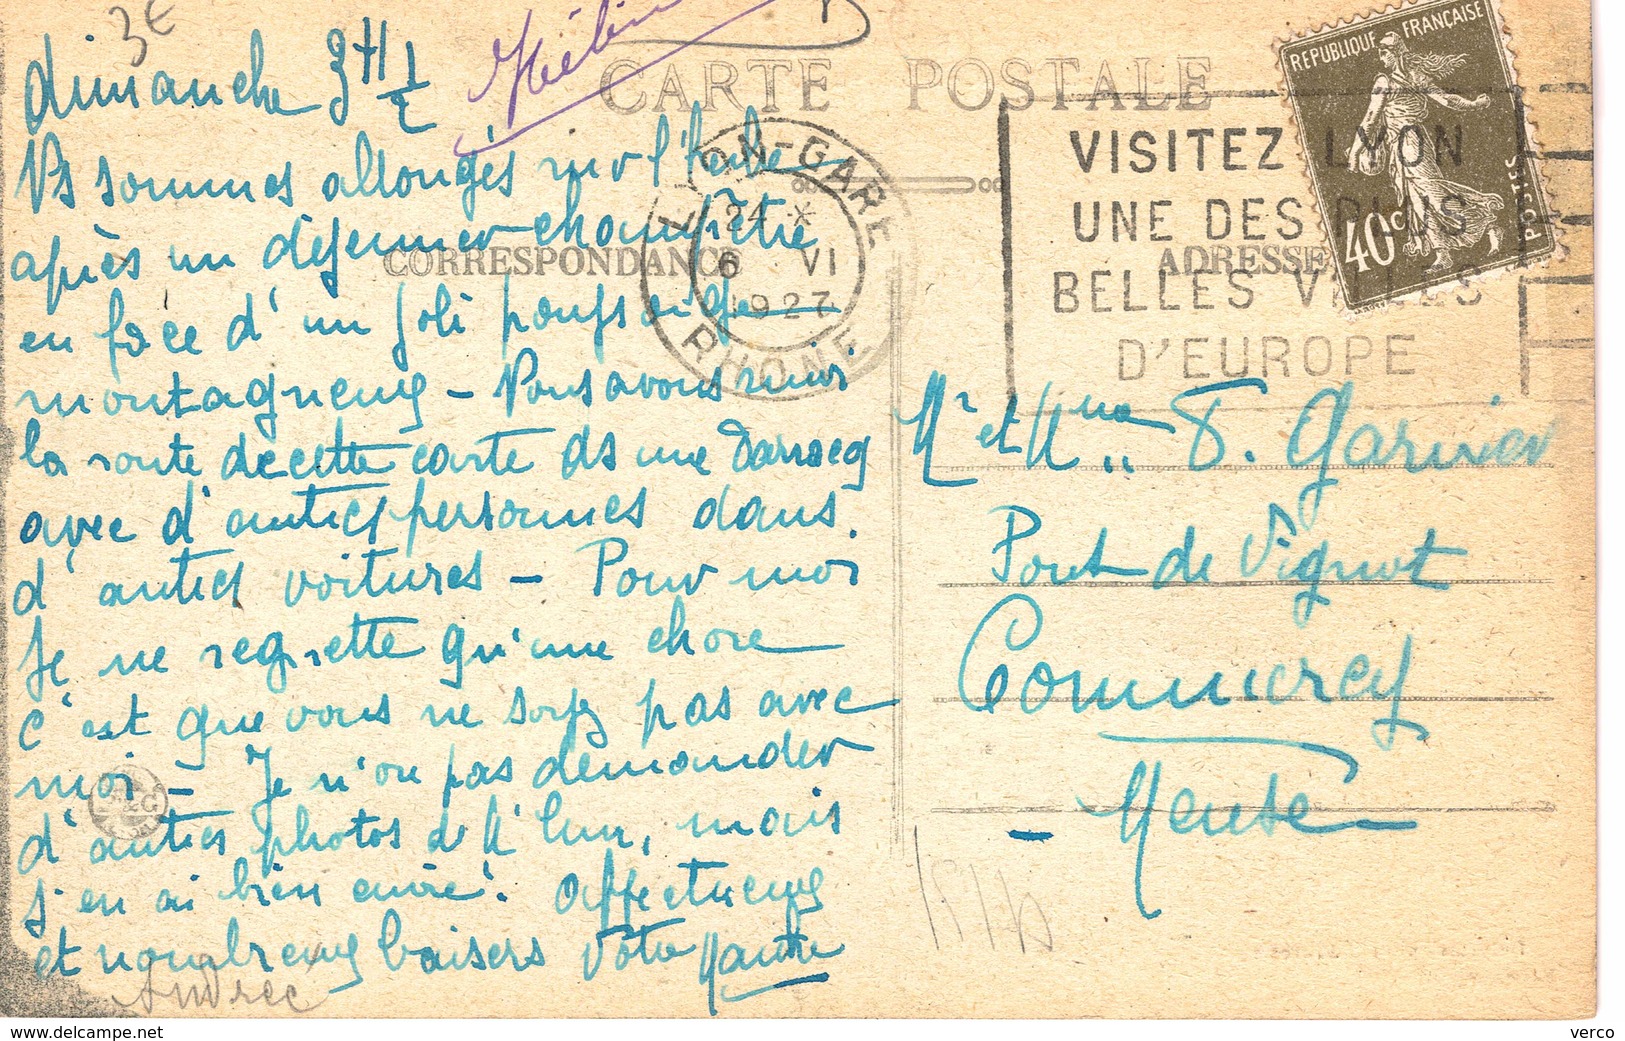 3€
dimanche 3H 1/2
CARTE POSTALE
REPUBLIQUE FRANÇAISE
40c POSTES
LYON-GARE
24 *
6 VI
1927
RHONE
VISITEZ LYON
UNE DES PLUS
BELLES VILLES
D'EUROPE
CORRESPONDANCE
ADRESSE
Vs sommes allongés sur l'herbe
après un déjeuner champêtre
en face d'un joli paysage
montagneux – Nous avons suivi
la route de cette carte ds une Darracq
avec d'autres personnes dans
d'autres voitures – Pour moi
Je ne regrette qu'une chose
c'est que vous ne soyez pas avec
moi – Je n'ose pas demander
d'autres photos à Mr , mais
j'en ai bien envie. Affectueux
et nombreux baisers Votre
Andrée
Mr et Mme F. Garnier
Pont de Vignot
Commercy
– Meuse –
delcampe.net
verco